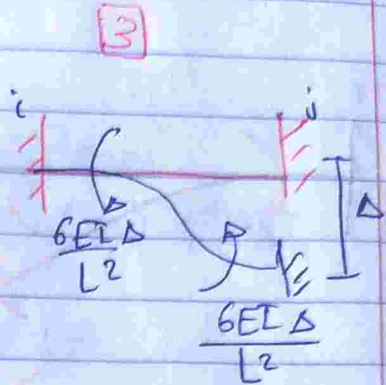 3
i j
Δ
6EIΔ
L²
6EIΔ
L²